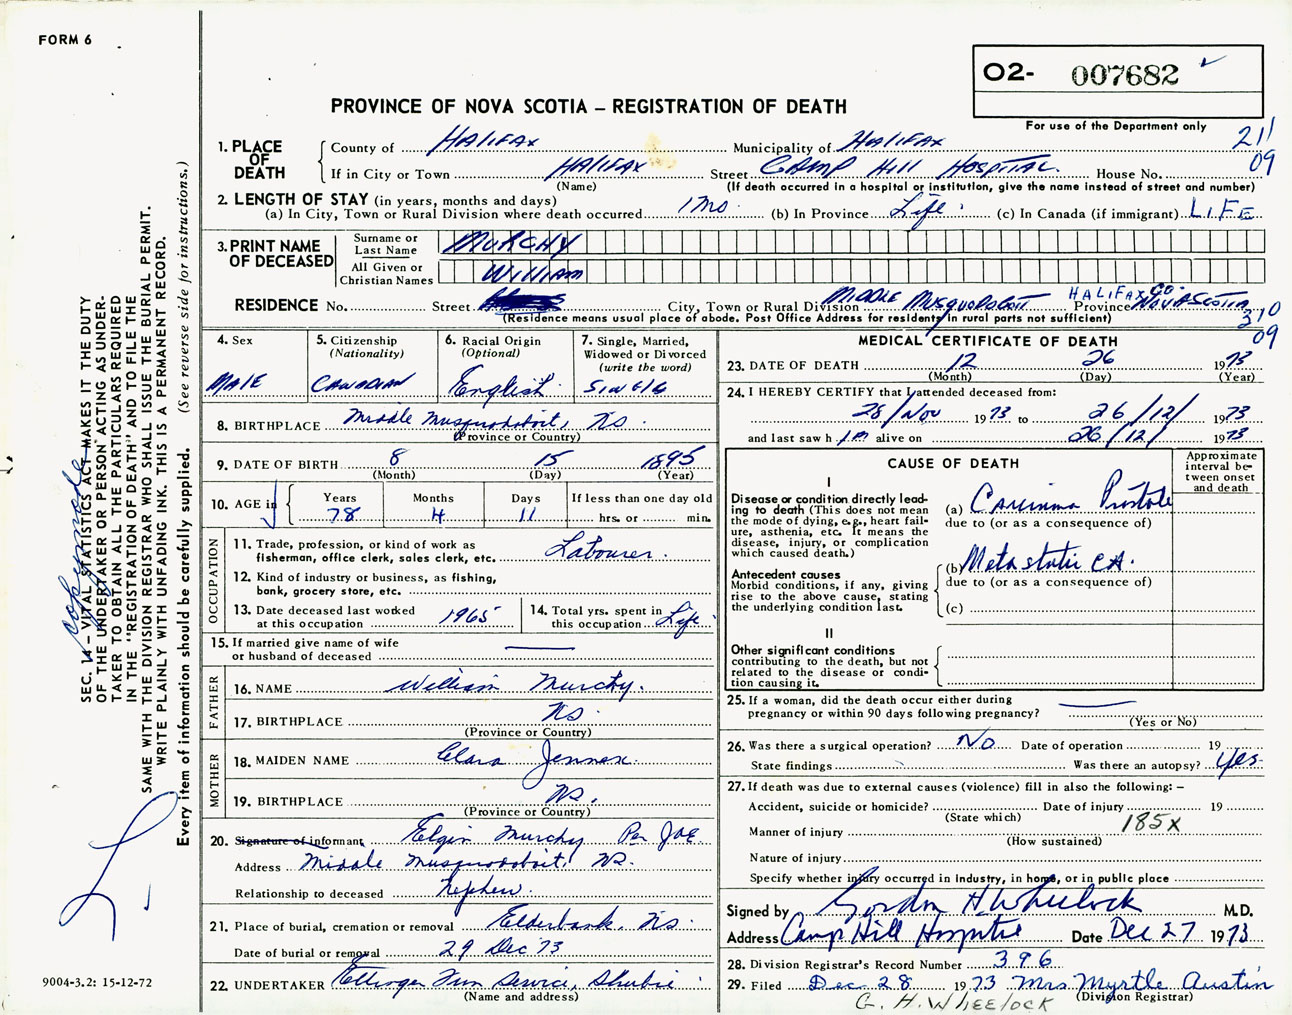 FORM 6
O2- 007682
PROVINCE OF NOVA SCOTIA – REGISTRATION OF DEATH
For use of the Department only
211
09
1. PLACE OF DEATH
County of Halifax Municipality of Halifax
If in City or Town Halifax Street Camp Hill Hospital House No.
(Name) (If death occurred in a hospital or institution, give the name instead of street and number)
2. LENGTH OF STAY (in years, months and days)
(a) In City, Town or Rural Division where death occurred 1 Mo (b) In Province Life (c) In Canada (if immigrant) LIFE
3. PRINT NAME OF DECEASED
Surname or Last Name MURCHY
All Given or Christian Names William
RESIDENCE No. Street City, Town or Rural Division Middle Musquodoboit HALIFAX CO. Province Nova Scotia
(Residence means usual place of abode. Post Office Address for residents in rural parts not sufficient)
310
09
4. Sex
MALE
5. Citizenship (Nationality)
CANADIAN
6. Racial Origin (Optional)
English
7. Single, Married, Widowed or Divorced (write the word)
SINGLE
8. BIRTHPLACE Middle Musquodoboit, NS
(Province or Country)
9. DATE OF BIRTH 8 15 1895
(Month) (Day) (Year)
10. AGE in Years 78 Months 4 Days 11 If less than one day old hrs. or min.
OCCUPATION
11. Trade, profession, or kind of work as fisherman, office clerk, sales clerk, etc. Labourer.
12. Kind of industry or business, as fishing, bank, grocery store, etc.
13. Date deceased last worked at this occupation 1965
14. Total yrs. spent in this occupation Life
15. If married give name of wife or husband of deceased —
FATHER
16. NAME William Murchy.
17. BIRTHPLACE NS
(Province or Country)
MOTHER
18. MAIDEN NAME Clara Jennex.
19. BIRTHPLACE NS.
(Province or Country)
20. Signature of informant Elgin Murchy Per JAE
Address Middle Musquodoboit, NS.
Relationship to deceased Nephew.
21. Place of burial, cremation or removal Elderbank, NS
Date of burial or removal 29 Dec 73
22. UNDERTAKER Ettinger Fun Service, Shubie
(Name and address)
MEDICAL CERTIFICATE OF DEATH
23. DATE OF DEATH 12 26 1973
(Month) (Day) (Year)
24. I HEREBY CERTIFY that I attended deceased from:
28/Nov 1973 to 26/12/ 1973
and last saw him alive on 26/12/ 1973
CAUSE OF DEATH
Approximate interval between onset and death
I
Disease or condition directly leading to death (This does not mean the mode of dying, e.g., heart failure, asthenia, etc. It means the disease, injury, or complication which caused death.)
(a) Carcinoma Prostate
due to (or as a consequence of)
Antecedent causes
Morbid conditions, if any, giving rise to the above cause, stating the underlying condition last.
(b) Metastatic CA.
due to (or as a consequence of)
(c)
II
Other significant conditions contributing to the death, but not related to the disease or condition causing it.
25. If a woman, did the death occur either during pregnancy or within 90 days following pregnancy? —
(Yes or No)
26. Was there a surgical operation? No Date of operation 19
State findings Was there an autopsy? Yes
27. If death was due to external causes (violence) fill in also the following: –
Accident, suicide or homicide? Date of injury 19
(State which)
185X
Manner of injury
(How sustained)
Nature of injury
Specify whether injury occurred in industry, in home, or in public place
Signed by Gordon H Wheelock M.D.
Address Camp Hill Hospital Date Dec 27 1973
28. Division Registrar's Record Number 396
29. Filed Dec 28 1973 Mrs Myrtle Austin
(Division Registrar)
G. H. WHEELOCK
SEC. 14 – VITAL STATISTICS ACT MAKES IT THE DUTY
OF THE UNDERTAKER OR PERSON ACTING AS UNDER-
TAKER TO OBTAIN ALL THE PARTICULARS REQUIRED
IN THE "REGISTRATION OF DEATH" AND TO FILE THE
SAME WITH THE DIVISION REGISTRAR WHO SHALL ISSUE THE BURIAL PERMIT.
WRITE PLAINLY WITH UNFADING INK. THIS IS A PERMANENT RECORD.
Every item of information should be carefully supplied. (See reverse side for instructions.)
copy made
9004-3.2: 15-12-72